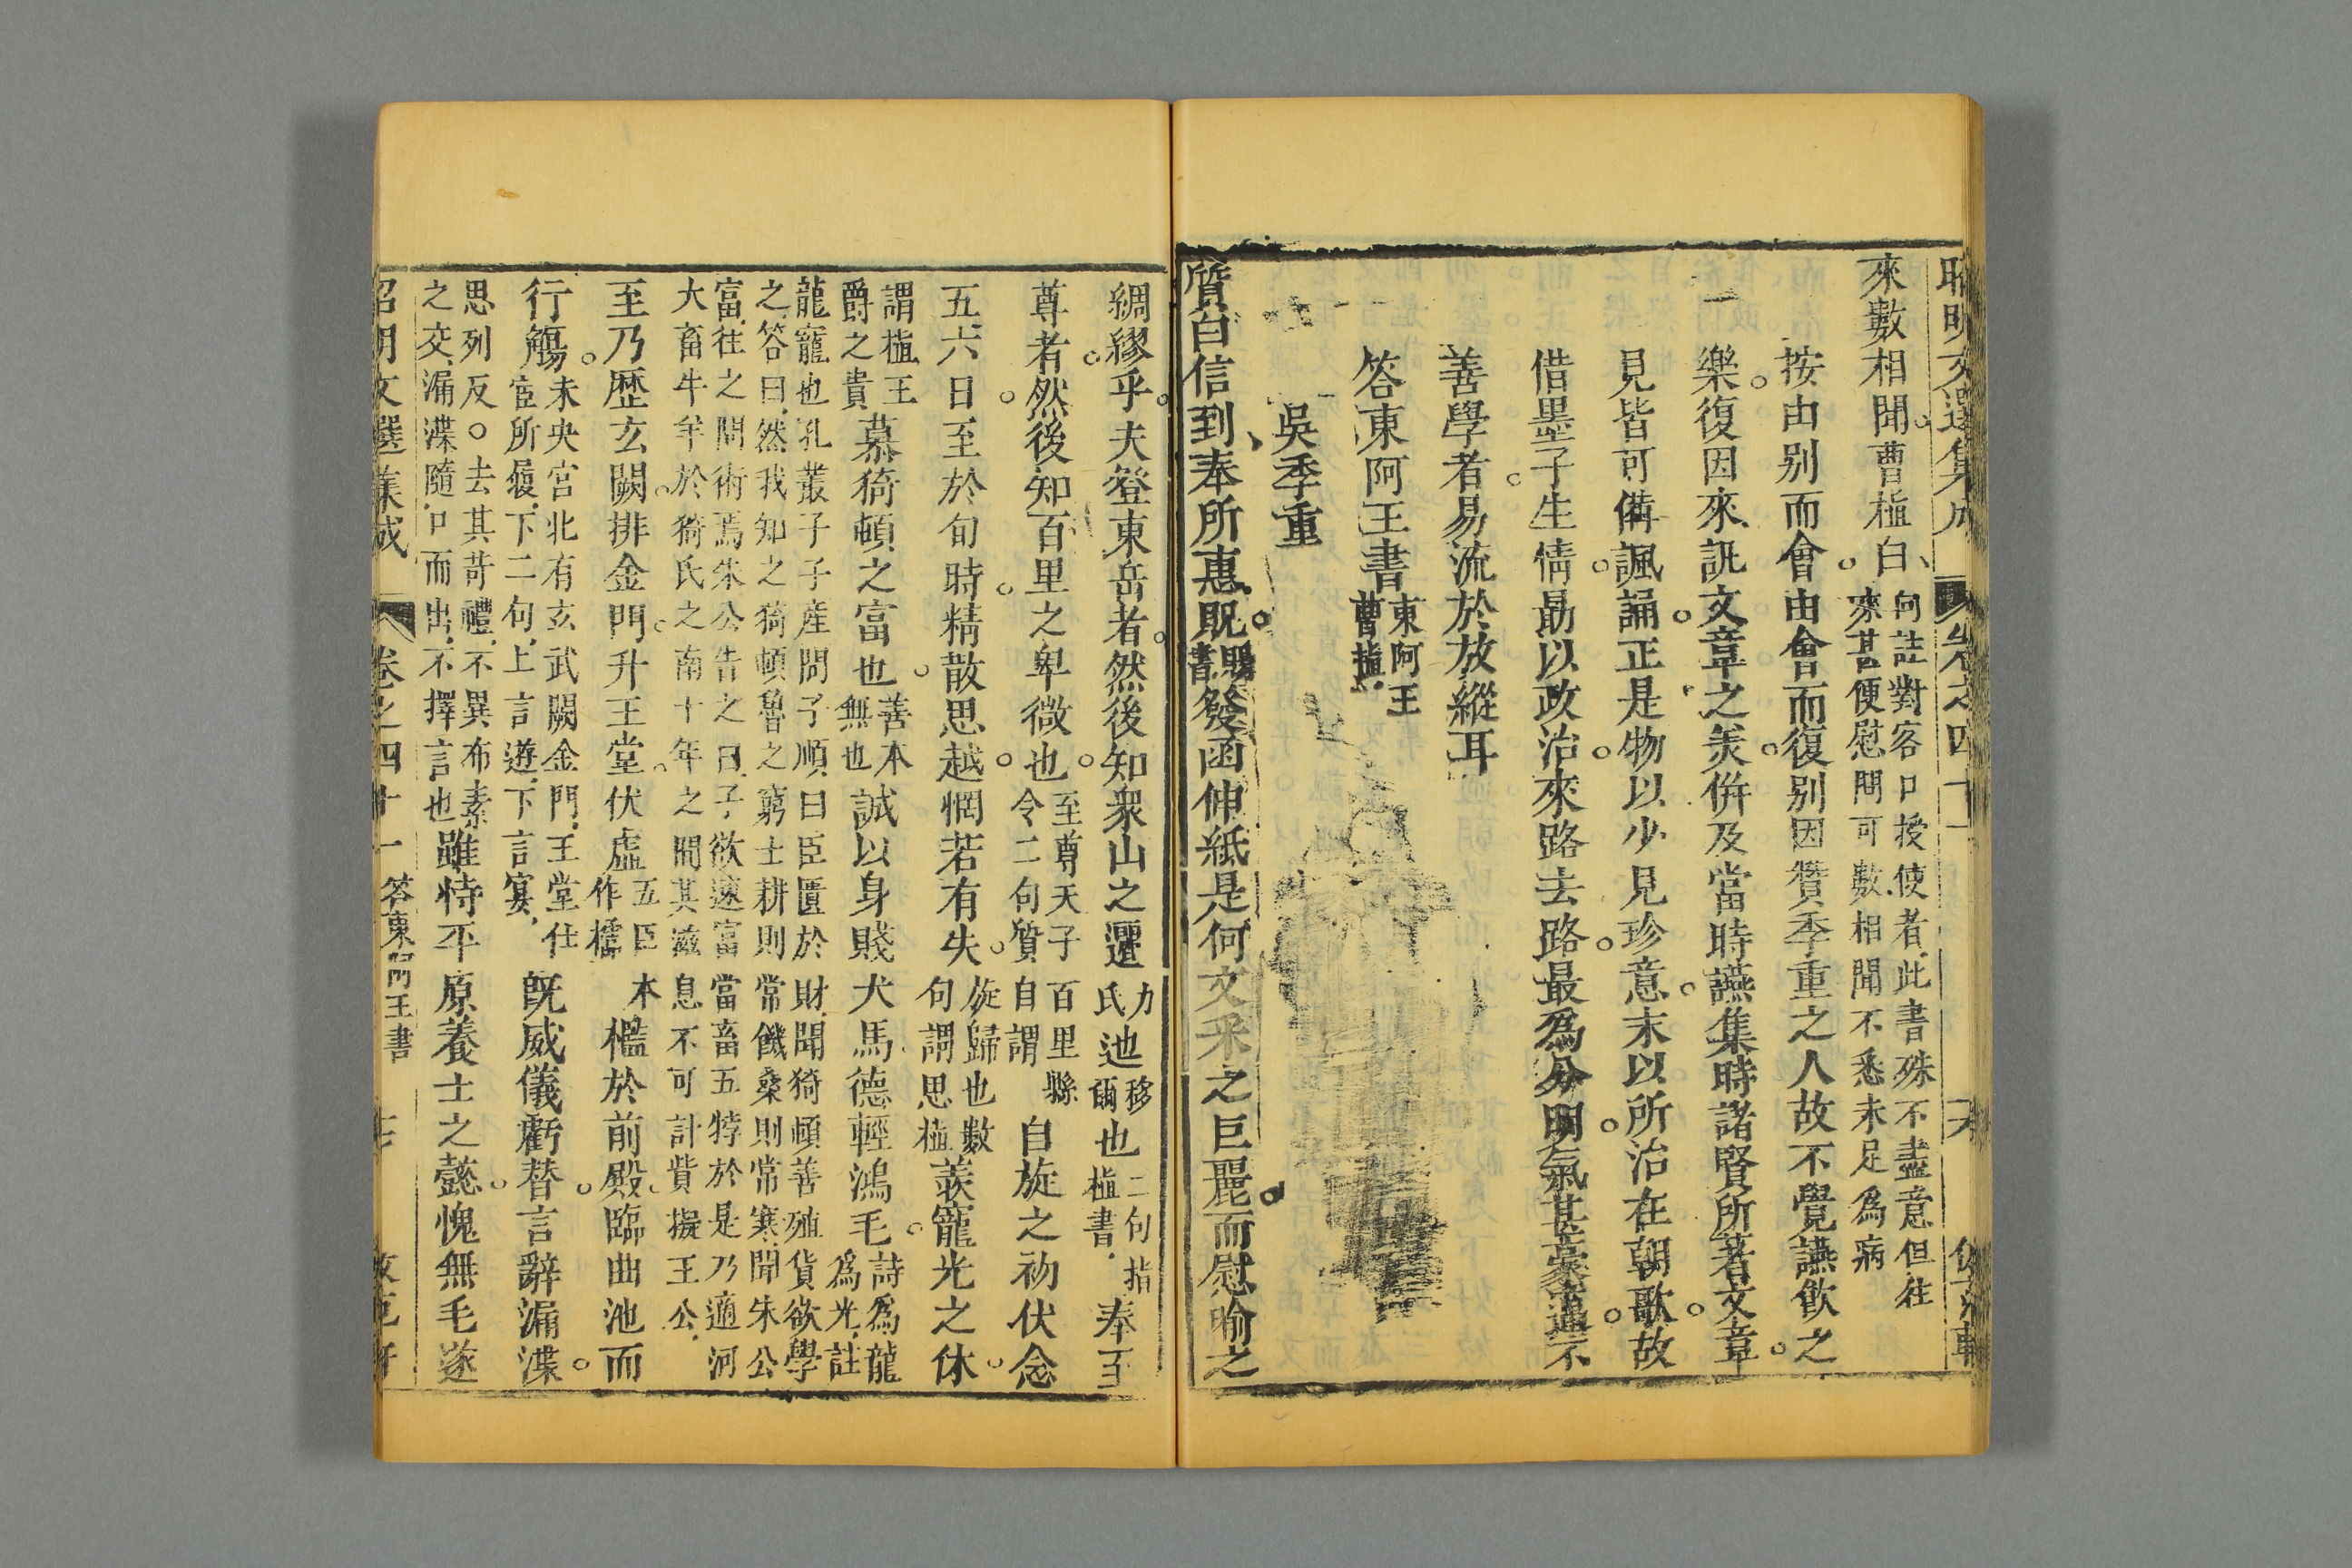 昭明文選集成 卷之四十一
來數相聞曹植白何註對客口授使者此書殊不盡意但往
來甚便慰問可數相聞不悉未足爲病
按由别而會由會而復别因贊季重之人故不覺讌飲之
樂復因來訊文章之羙倂及當時讌集時諸賢所著文章
見皆可備諷誦正是物以少見珍意末以所治在朝歌故
借墨子生情勗以政治來路去路最爲分明氣甚豪邁不
善學者易流於放縱耳
答東阿王書東阿王
曹植
吳季重
質白信到奉所惠貺賜
書發函伸紙是何文采之巨麗而慰喻之
綢繆乎夫登東岳者然後知衆山之邐力
氏迆移
爾也二句指
植書奉至
尊者然後知百里之卑微也至尊天子
令二句質百里縣
自謂自旋之初伏念
五六日至於旬時精散思越惘若有失旋歸也數
句謂思植羨寵光之休
謂植王
爵之貴慕猗頓之富也善本
無也誠以身賤犬馬德輕鴻毛詩爲龍
爲光註
龍寵也孔叢子子産問子順曰臣匱於財聞猗頓善殖貨欲學
之答曰然我知之猗頓魯之窮士耕則常饑桑則常寒聞朱公
富往之問術焉朱公告之曰子欲速富當畜五牸於是乃適河
大畜牛羊於猗氏之南十年之間其滋息不可計貲擬王公
至乃歷玄闕排金門升玉堂伏虛五臣
作櫺本檻於前殿臨曲池而
行觴未央宮北有玄武闕金門玉堂仕
宦所履下二句上言遊下言宴旣威儀虧替言辭漏渫
思列反去其苛禮不異布素
之交漏渫隨口而出不擇言也雖恃平原養士之懿愧無毛遂
昭明文選集成 卷之四十一 答東阿王書